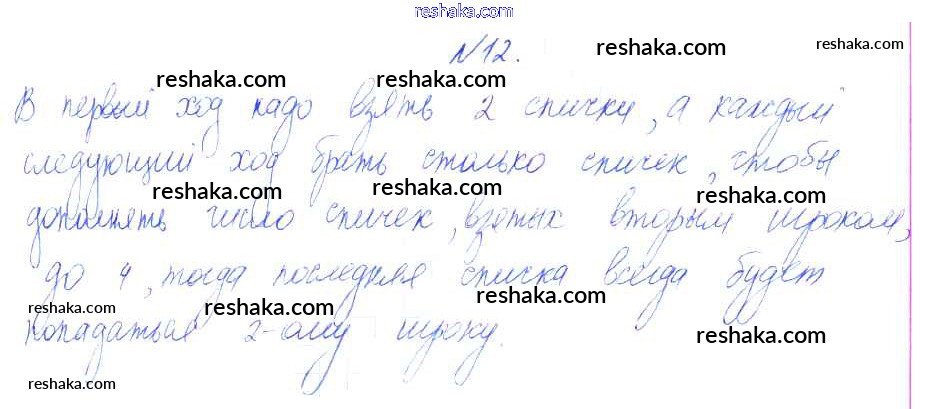 reshaka.com
№12. reshaka.com reshaka.com
reshaka.com reshaka.com reshaka.com
В первый ход надо взять 2 спички, а каждый
reshaka.com
следующий ход брать столько спичек, чтобы
reshaka.com reshaka.com reshaka.com
дополнять число спичек, взятых вторым игроком,
до 4, тогда последняя спичка всегда будет
reshaka.com reshaka.com reshaka.com
попадаться 2-ому игроку.
reshaka.com
reshaka.com reshaka.com reshaka.com